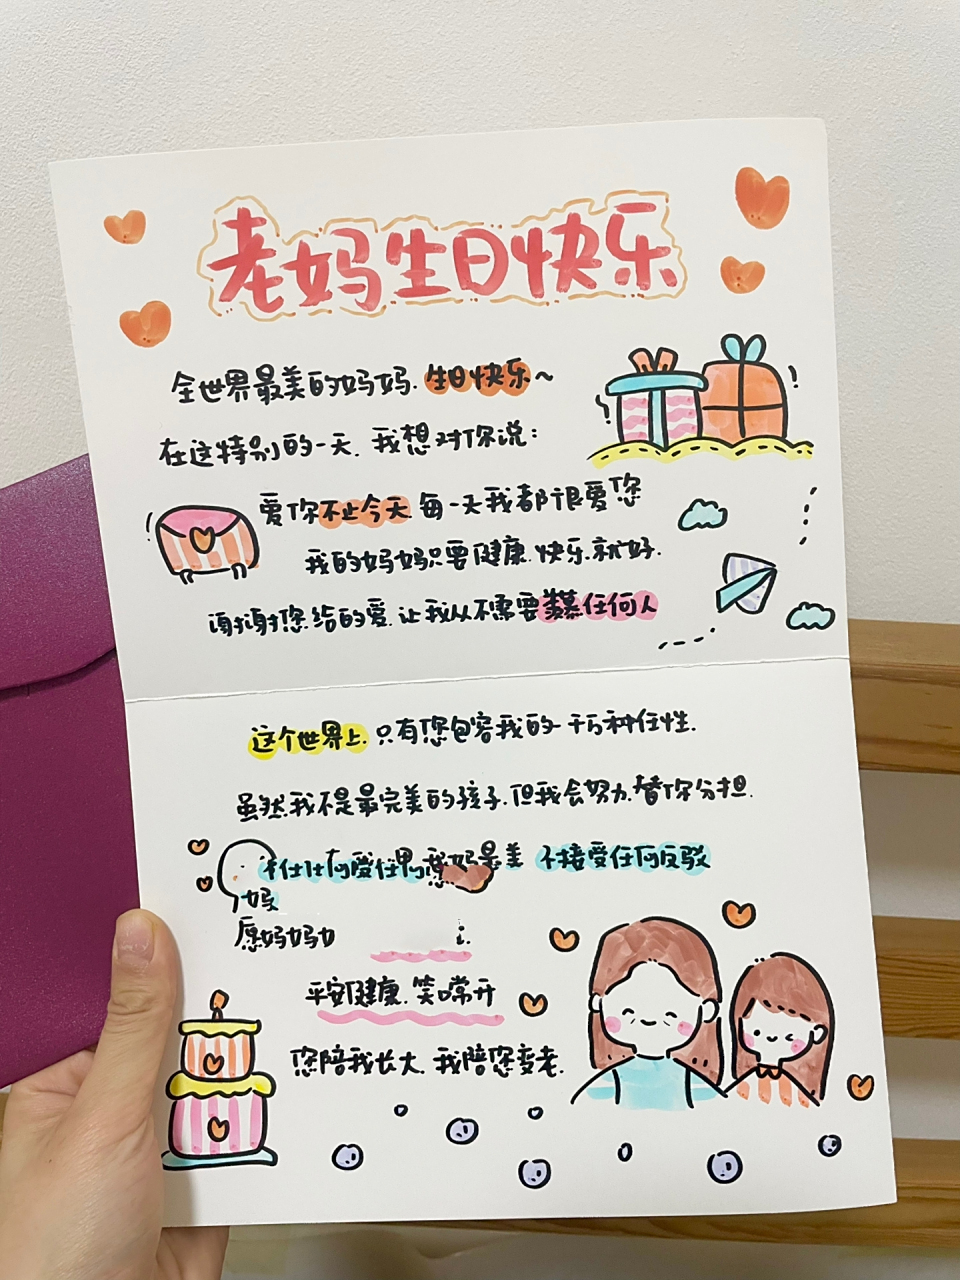 老妈生日快乐
全世界最美的妈妈.生日快乐~
在这特别的一天.我想对你说:
爱你不止今天.每一天我都很爱您
我的妈妈只要健康.快乐.就好.
谢谢您给的爱.让我从不需要羡慕任何人
这个世界上.只有您包容我的千万种任性.
虽然我不是最完美的孩子.但我会努力.替你分担.
我妈最美 不接受任何反驳
妈
愿妈妈
平安健康.笑嘴常开
您陪我长大.我陪您变老.